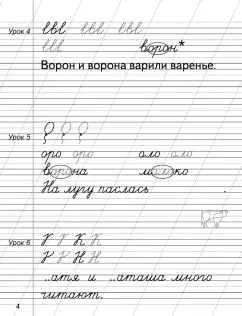 Урок 4
ворон*
Ворон и ворона варили варенье.
Урок 5
оро оро оло оло
ворона молоко
На лугу паслась
Урок 6
К К
Н Н
..атя и ..аташа много
читают.
4